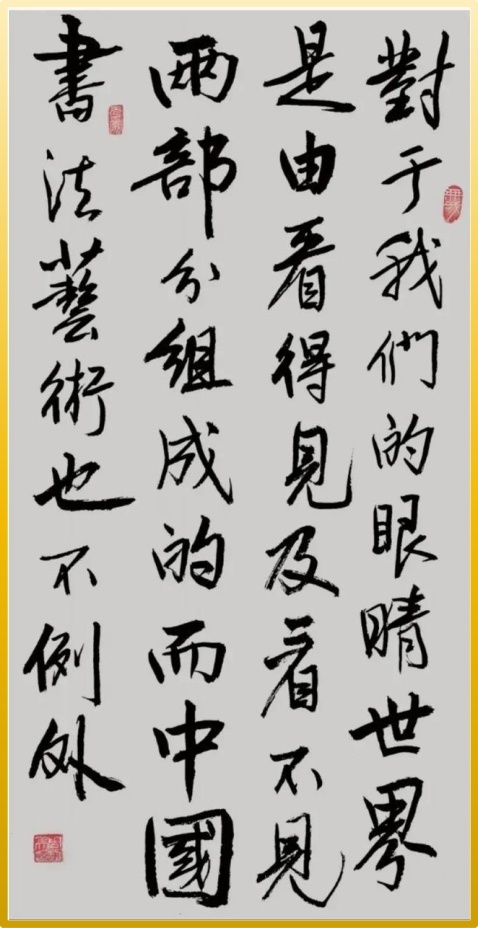 對于我們的眼睛世界
是由看得見及看不見
兩部分組成的而中國
書法藝術也不例外